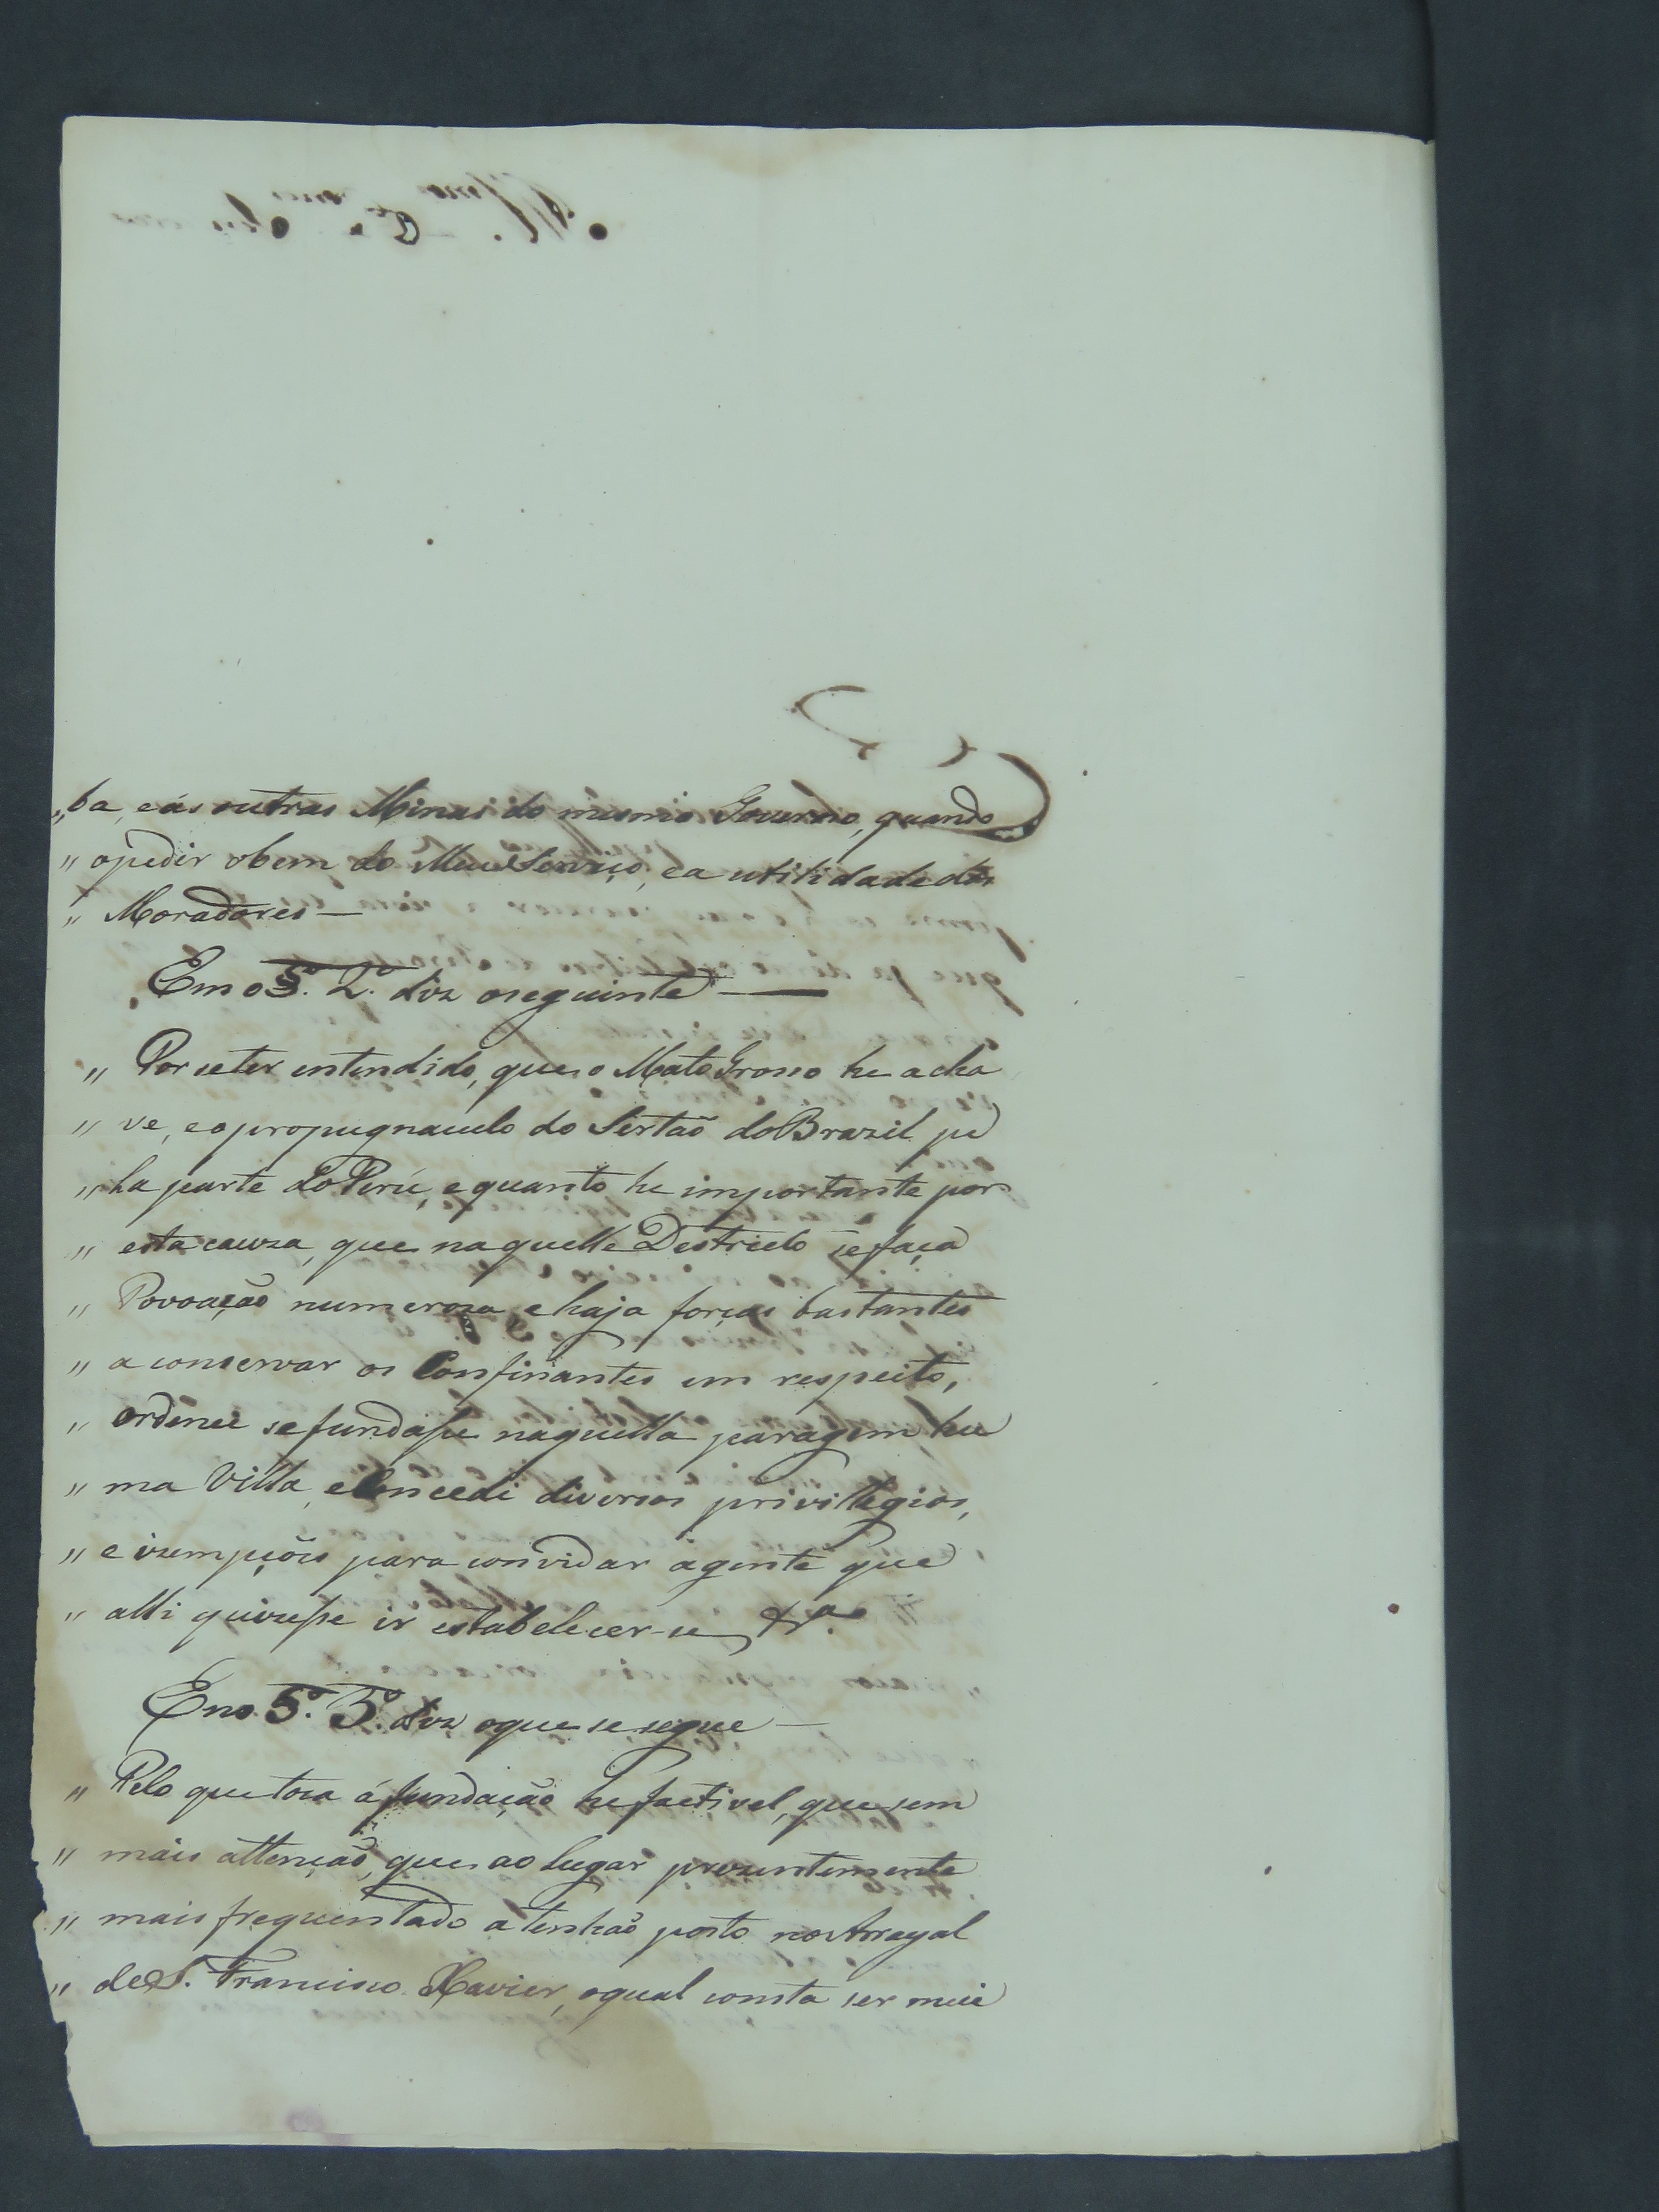 „ ba, e ás outras Minas do mesmo Governo, quando
„ o pedir o bem do Meu Serviço, e a utilidade dos
„ Moradores —
Em o §.º 2.º diz o seguinte —
„ Por se ter entendido, que o Mato Grosso he a cha
„ ve, e o propugnaculo do Sertão do Brazil pe
„ la parte do Perú, e quanto he importante por
„ esta cauza, que naquelle Destricto se faça
„ Povoação numeroza, e haja forças bastantes
„ a conservar os Confinantes em respeito,
„ ordenei se fundasse naquella paragem hu
„ ma Villa, e Concedi diversos privillegios,
„ e izempções para convidar á gente que
„ alli quizesse ir estabelecer-se &ª
E no §.º 5.º diz o que se segue —
„ Pelo que toca á fundação he factivel, que sem
„ mais attenção, que ao lugar prezentemente
„ mais frequentado a tenhão posto no Arrayal
„ de S. Francisco Xavier, o qual consta ser mui